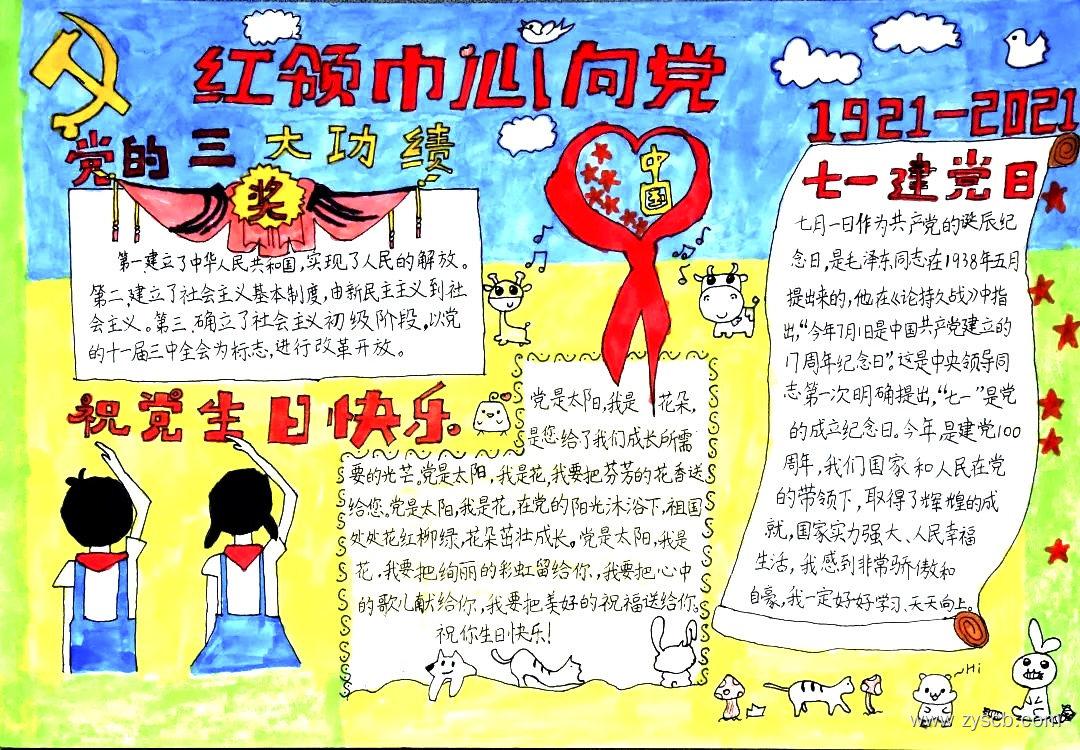 红领巾心向党
党的三大功绩
奖
第一建立了中华人民共和国,实现了人民的解放。
第二,建立了社会主义基本制度,由新民主主义到社
会主义。第三、确立了社会主义初级阶段,以党
的十一届三中全会为标志,进行改革开放。
中国
1921-2021
七一建党日
七月一日作为共产党的诞辰纪
念日,是毛泽东同志在1938年五月
提出来的,他在《论持久战》中指
出,“今年7月1日是中国共产党建立的
17周年纪念日”。这是中央领导同
志第一次明确提出,“七一”是党
的成立纪念日。今年是建党100
周年,我们国家和人民在党
的带领下,取得了辉煌的成
就,国家实力强大、人民幸福
生活,我感到非常骄傲和
自豪,我一定好好学习、天天向上。
祝党生日快乐
党是太阳,我是花朵,
是您给了我们成长所需
要的光芒。党是太阳,我是花,我要把芬芳的花香送
给您。党是太阳,我是花,在党的阳光沐浴下,祖国
处处花红柳绿,花朵茁壮成长。党是太阳,我是
花,我要把绚丽的彩虹留给你,我要把心中
的歌儿献给你,我要把美好的祝福送给你。
祝你生日快乐!
Hi
www.zyscb.com